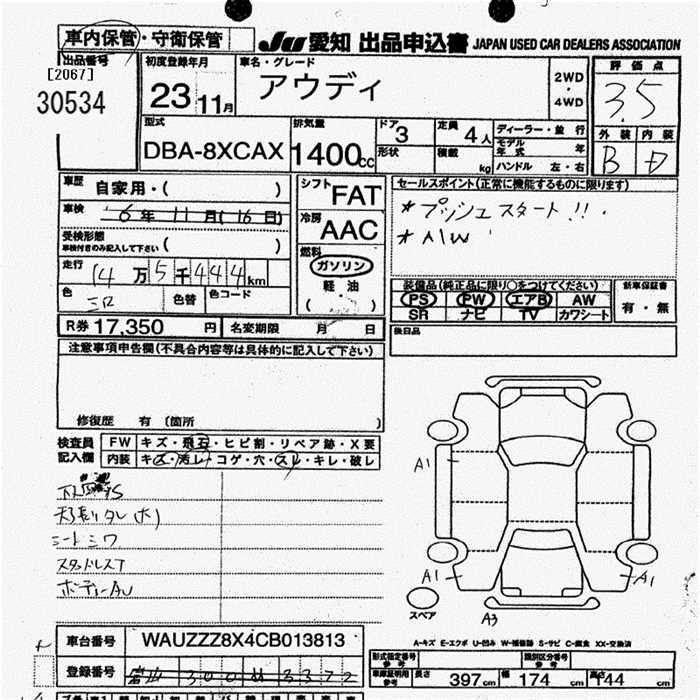 車内保管・守衛保管
JU 愛知 出品申込書 JAPAN USED CAR DEALERS ASSOCIATION
出品番号
[2067]
30534
初度登録年月
23 11月
車名・グレード
アウディ
2WD
・
4WD
評価点
3.5
外装 内装
B D
型式
DBA-8XCAX
排気量
1400cc
ドア 3
形状
定員 4人
積載 kg
ディーラー・並行
モデル年式 年
ハンドル 左・右
車歴 自家用・( )
車検 6年 11月(16日)
受検形態
車検付きのみ記入して下さい ( )
走行 14万5千444km
色 色替 色コード
シフト FAT
冷房 AAC
燃料
ガソリン
軽油
( )
セールスポイント(正常に機能するものに限ります)
* プッシュスタート!!.
* A/W
装備品(純正品に限り○をつけてください)
PS PW エアB AW
SR ナビ TV カワシート
新車保証書
有・無
R券 17,350円 名変期限 月 日
後日品
注意事項申告欄(不具合内容等は具体的に記入して下さい)
修復歴 有 (箇所 )
検査員
記入欄
FW キズ・飛石・ヒビ割・リペア跡・X要
内装 キズ・汚レ・コゲ・穴・スレ・キレ・破レ
シートシワ
スタッドレスT
A1
A1
A1
A3
スペア
A-キズ E-エクボ U-凹み W-補修跡 S-サビ C-腐食 XX-交換済
車台番号 WAUZZZ8X4CB013813
登録番号 300 3372
形式指定番号
参考
類別区分番号
参考
車庫証明用
参考
長さ 397cm 幅 174cm 高さ 144cm